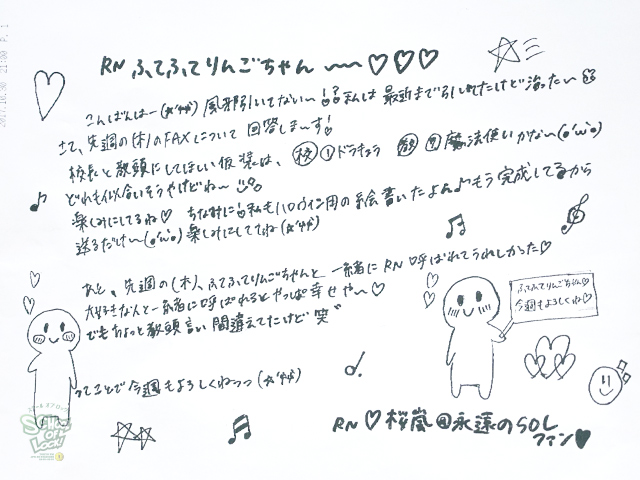 RN ふてふてりんごちゃん 〜〜♡♡♡
こんばんはー(☆'艸') 風邪引いてない〜!?私は最近まで引いてたけど治った〜
さて、先週の(木)のFAXについて回答しま〜す!
校長と教頭にしてほしい仮装は、㊑①ドラキュラ ㊙⑨魔法使いかな〜(o'ω'o)
どれも似合いそうやけどね〜
楽しみにしてるね♡ ちなみに!私もハロウィン用の絵書いたよ♪もう完成してるから
送るだけ〜(o'ω'o)楽しみにしててね(☆'艸')
あと、先週の(木)、ふてふてりんごちゃんと一緒にRN呼ばれてうれしかった♡
大好きなんと一緒に呼ばれるとやっぱ幸せや〜♡
でもちょっと教頭言い間違えてたけど笑
ってことで今週もよろしくねっっ(☆'艸')
ふてふてりんごちゃん♡
今週もよろしくね♡
RN ♡桜嵐@永遠のSOL
ファン♥
SCHOOL OF LOCK!